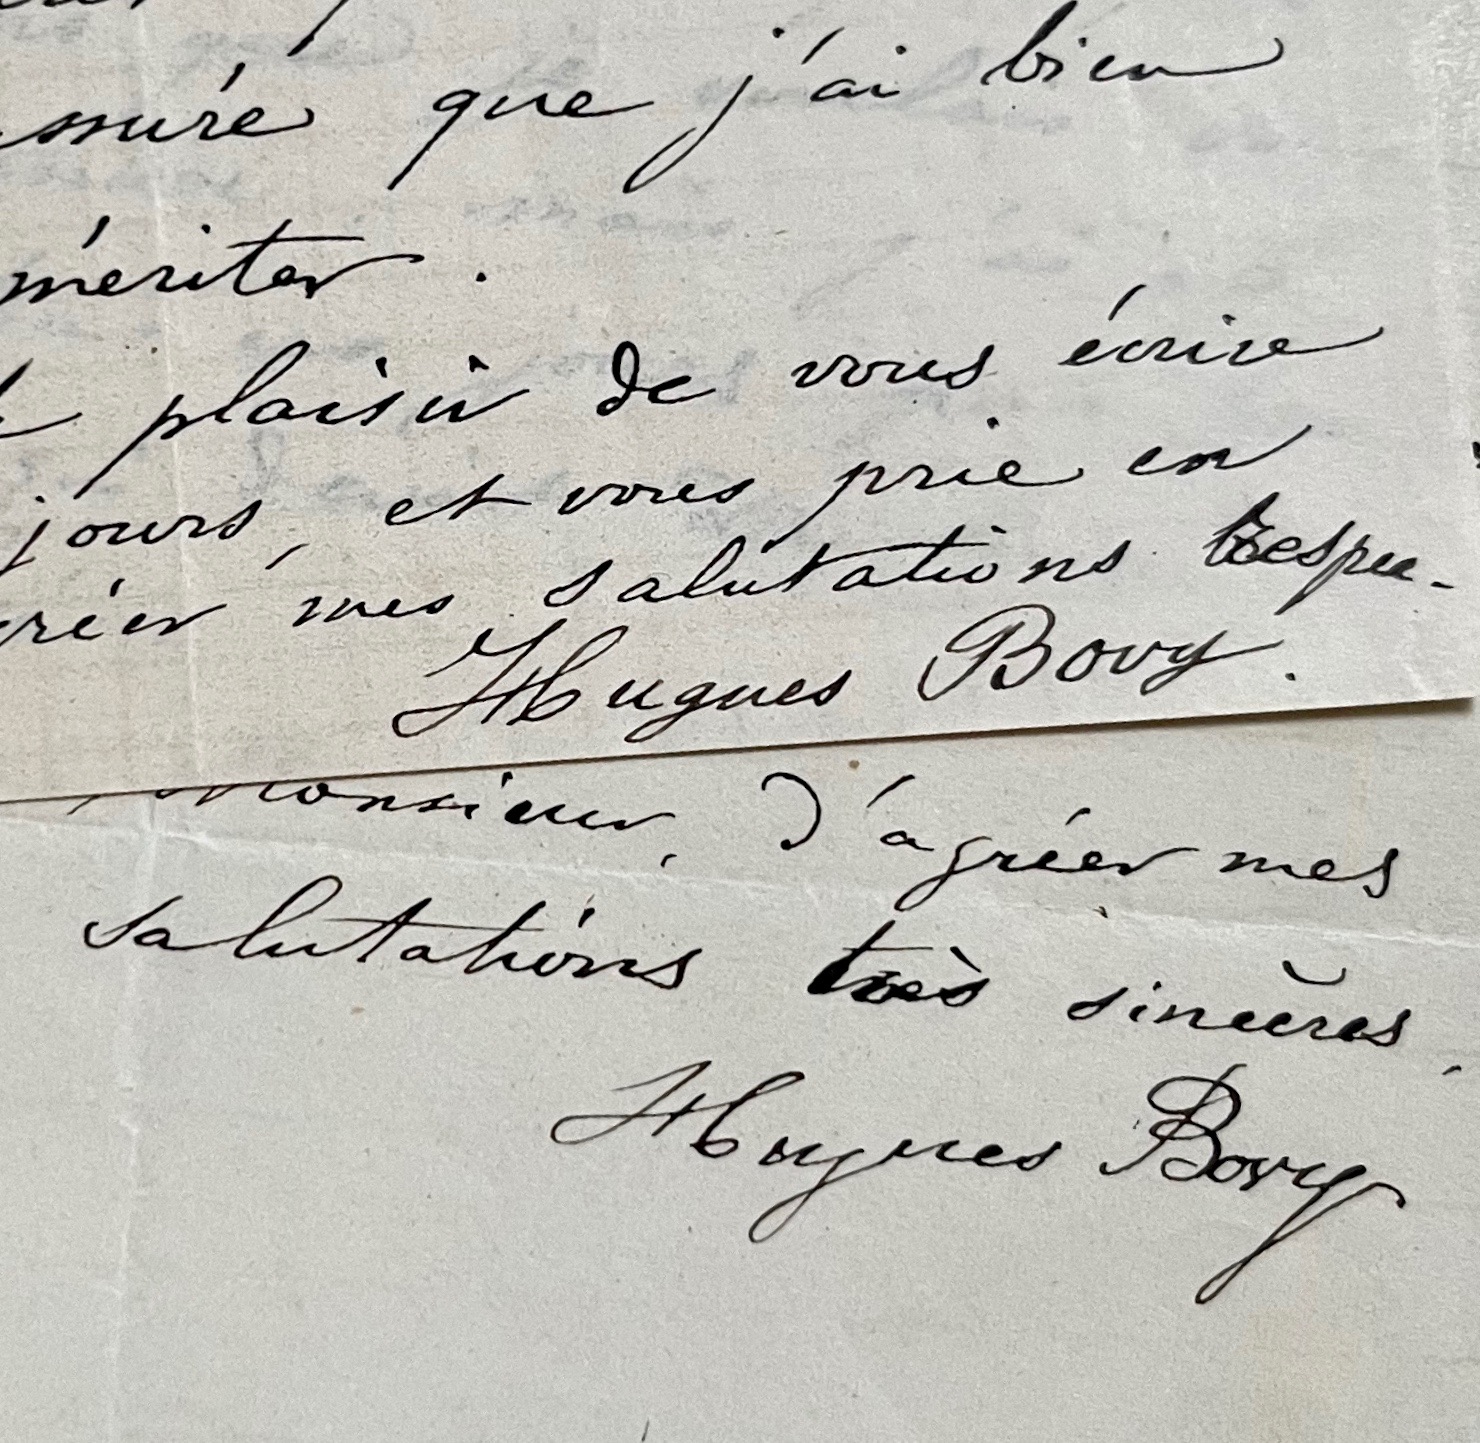 ssuré que j'ai bien
mériter.
plaisir de vous écrire
jours, et vous prie en
réer mes salutations respec-
Hugues Bovy.
Monsieur, d'agréer mes
salutations très sincères.
Hugues Bovy